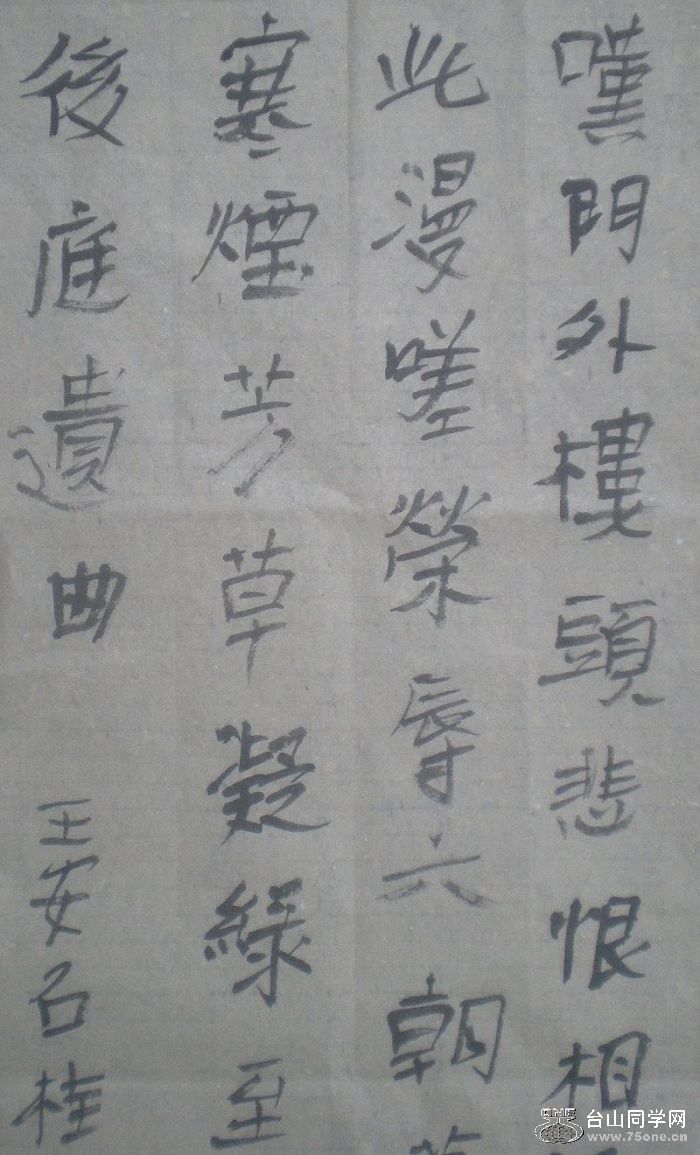 嘆門外樓頭悲恨相
此漫嗟榮辱六朝
寒煙芳草凝綠至
後庭遺曲 王安石桂
台山同学网
www.75one.cn